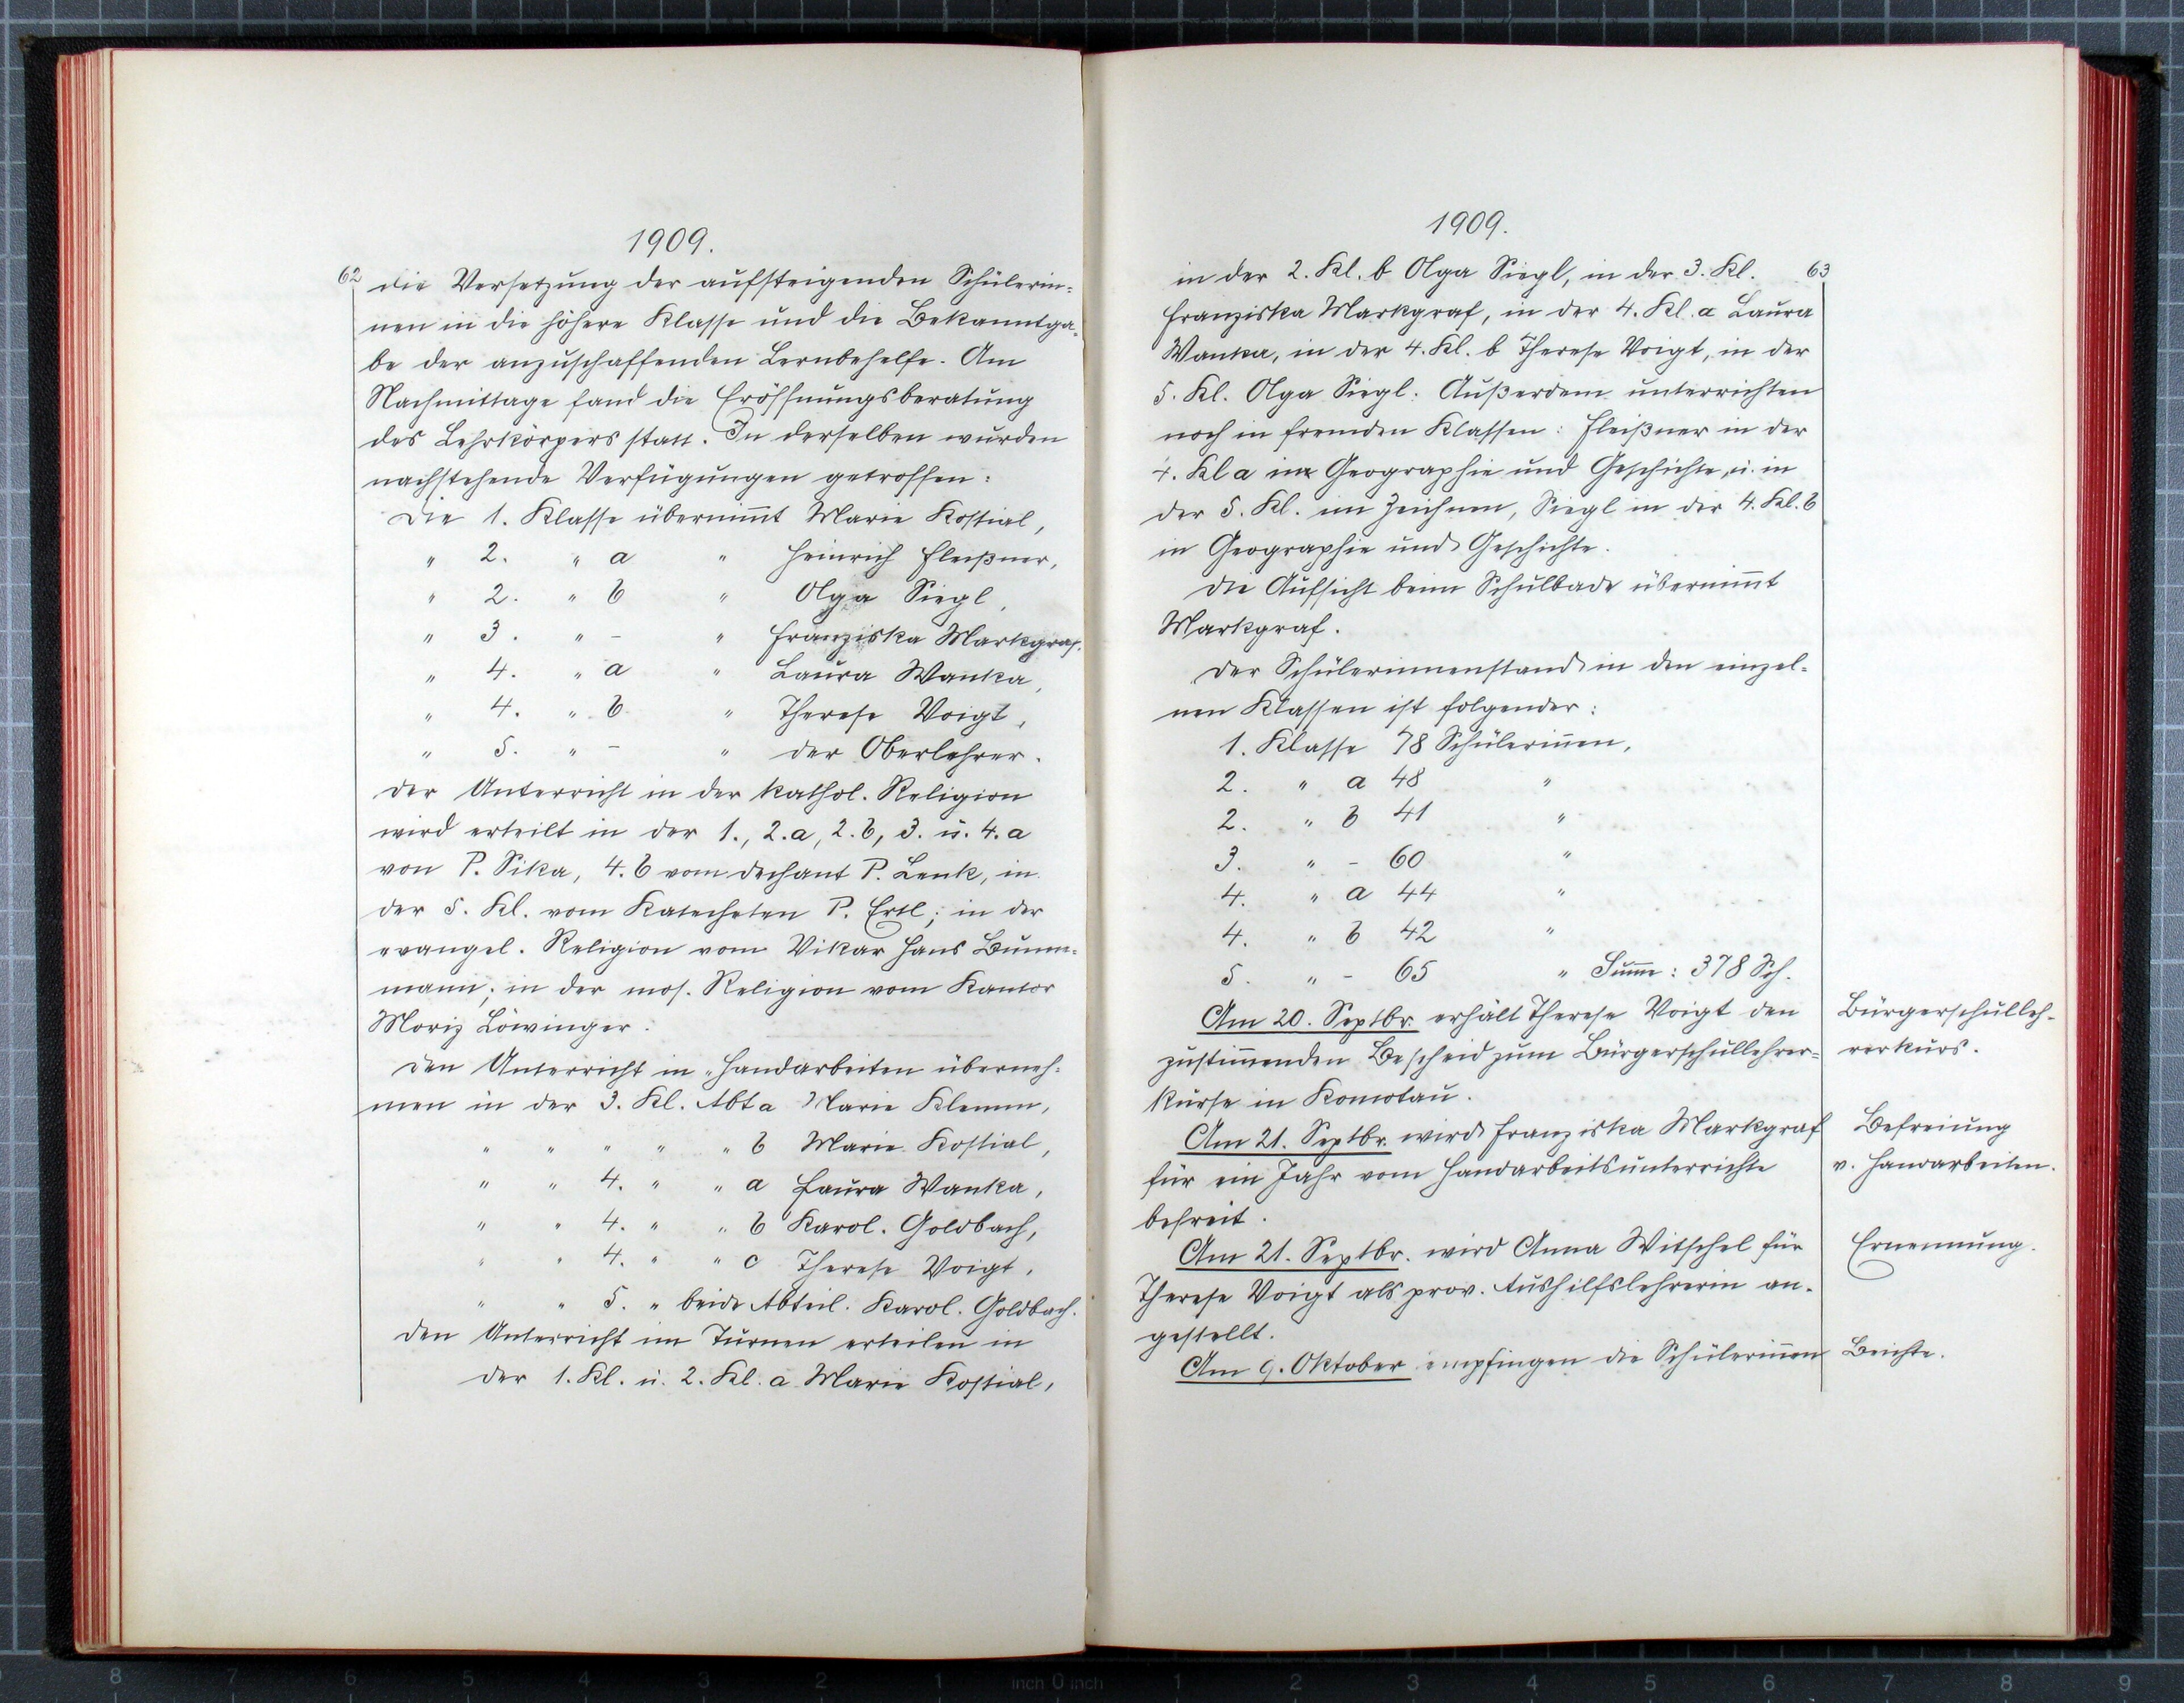 1909.
62
die Versetzung der aufsteigenden Schülerin-
nen in die höhere Klasse und die Bekanntga-
be der anzuschaffenden Lernbehelfe. Am
Nachmittage fand die Eröffnungsberatung
des Lehrkörpers statt. In derselben wurden
nachstehende Verfügungen getroffen:
Die 1. Klasse übernim̄t Marie Kostial,
" 2. " a " Heinrich Fleißner,
" 2. " b " Olga Siegl,
" 3. " – " Franziska Markgraf.
" 4. " a " Laura Wanka,
" 4. " b " Therese Voigt,
" 5. " – " der Oberlehrer.
Der Unterricht in der kathol. Religion
wird erteilt in der 1., 2.a, 2.b, 3. u. 4.a
von P. Sika, 4.b vom Dechant P. Lenk, in
der 5. Kl. vom Katecheten P. Ertl; in der
evangel. Religion vom Vikar Hans Bumm-
mann; in der mos. Religion vom Kantor
Moriz Löwinger.
Den Unterricht in Handarbeiten überneh-
men in der 3. Kl. Abt a Marie Klemm,
" " " " " b Marie Kostial,
" " 4. " " a Laura Wanka,
" " 4. " " b Karol. Goldbach,
" " 4. " " c Therese Voigt,
" " 5. " beide Abteil. Karol. Goldbach.
Den Unterricht im Turnen erteilen in
der 1. Kl. u. 2. Kl. a Marie Kostial,
1909.
63
in der 2. Kl. b Olga Siegl, in der 3. Kl.
Franziska Markgraf, in der 4. Kl. a Laura
Wanka, in der 4. Kl. b Therese Voigt, in der
5. Kl. Olga Siegl. Außerdem unterrichten
noch in fremden Klassen: Fleißner in der
4. Kl a in Geographie und Geschichte, u. in
der 5. Kl. im Zeichnen, Siegl in der 4. Kl. b
in Geographie und Geschichte.
Die Aufsicht beim Schulbade übernim̄t
Markgraf.
Der Schülerinnenstand in den einzel-
nen Klassen ist folgender:
1. Klasse 78 Schülerin̄en,
2. " a 48 "
2. " b 41 "
3. " – 60 "
4. " a 44 "
4. " b 42 "
5. " – 65 " Sum̄e: 378 Sch.
Am 20. Septbr. erhält Therese Voigt den
zustim̄enden Bescheid zum Bürgerschullehrer-
kurse in Komotau.
Bürgerschulleh-
rerkurs.
Am 21. Septbr. wird Franziska Markgraf
für ein Jahr vom Handarbeitsunterrichte
befreit.
Befreiung
v. Handarbeiten.
Am 21. Septbr. wird Anna Witschel für
Therese Voigt als prov. Aushilfslehrerin an-
gestellt.
Ernennung.
Am 9. Oktober empfingen die Schülerin̄en
Beichte.
8 7 6 5 4 3 2 1 inch 0 inch 1 2 3 4 5 6 7 8 9